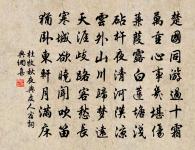 楚國同遊過十霜
萬重心事幾堪傷
蒹葭露白蓮塘淺
砧杵夜清河漢涼
雲外山川歸夢遠
天涯歧路客愁長
寒城欲曉聞吹笛
猶臥東軒月滿床
杜牧秋夜與友人宿詞
典網集